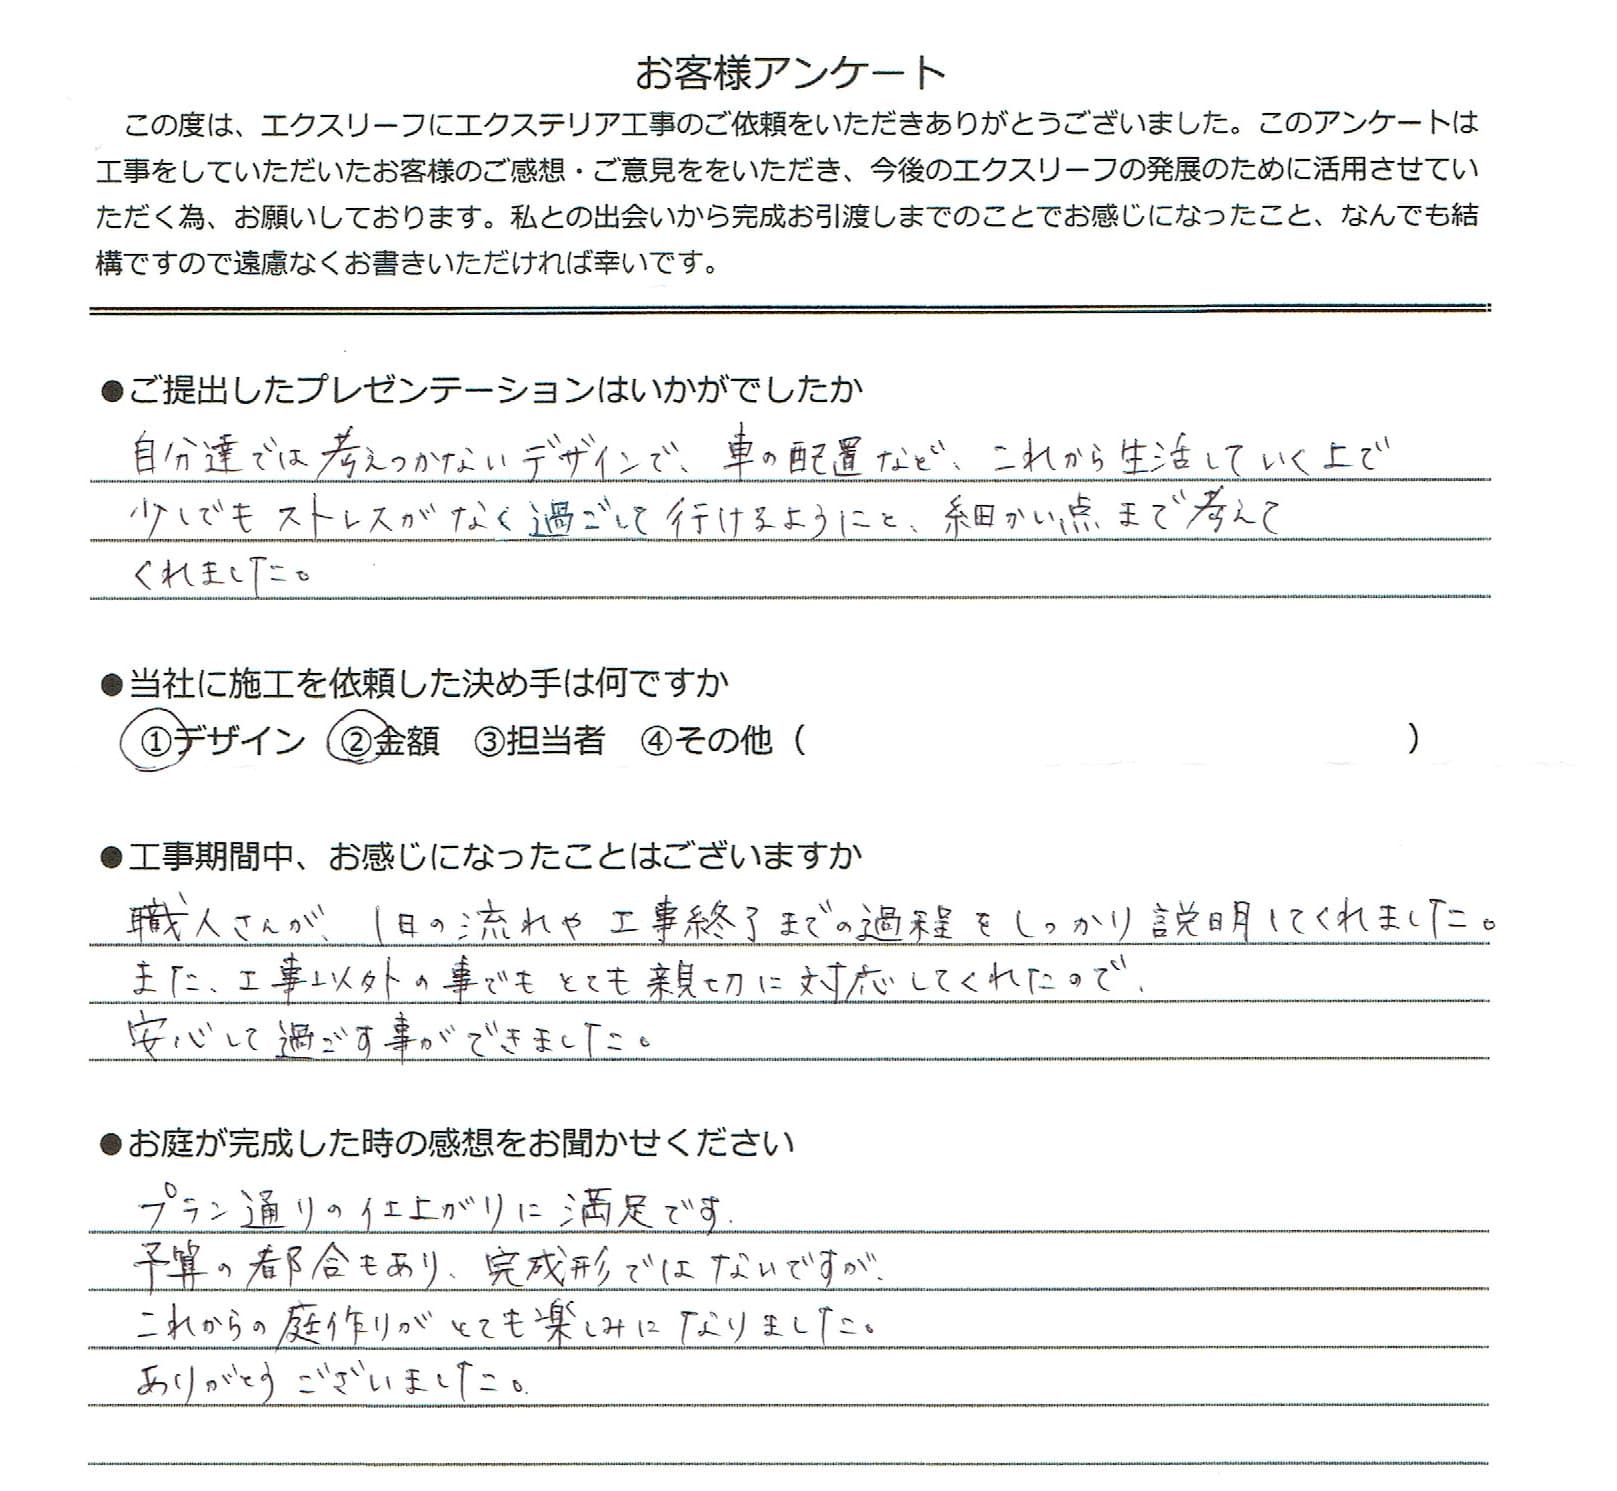 お客様アンケート
この度は、エクスリーフにエクステリア工事のご依頼をいただきありがとうございました。このアンケートは
工事をしていただいたお客様のご感想・ご意見ををいただき、今後のエクスリーフの発展のために活用させてい
ただく為、お願いしております。私との出会いから完成お引渡しまでのことでお感じになったこと、なんでも結
構ですので遠慮なくお書きいただければ幸いです。
●ご提出したプレゼンテーションはいかがでしたか
自分達では考えつかないデザインで、車の配置など、これから生活していく上で
少しでもストレスがなく過ごして行けるようにと、細かい点まで考えて
くれました。
●当社に施工を依頼した決め手は何ですか
①デザイン ②金額 ③担当者 ④その他（ ）
●工事期間中、お感じになったことはございますか
職人さんが、1日の流れや工事終了までの過程をしっかり説明してくれました。
また、工事以外の事でもとても親切に対応してくれたので、
安心して過ごす事ができました。
●お庭が完成した時の感想をお聞かせください
プラン通りの仕上がりに満足です.
予算の都合もあり、完成形ではないですが、
これからの庭作りがとても楽しみになりました。
ありがとうございました。